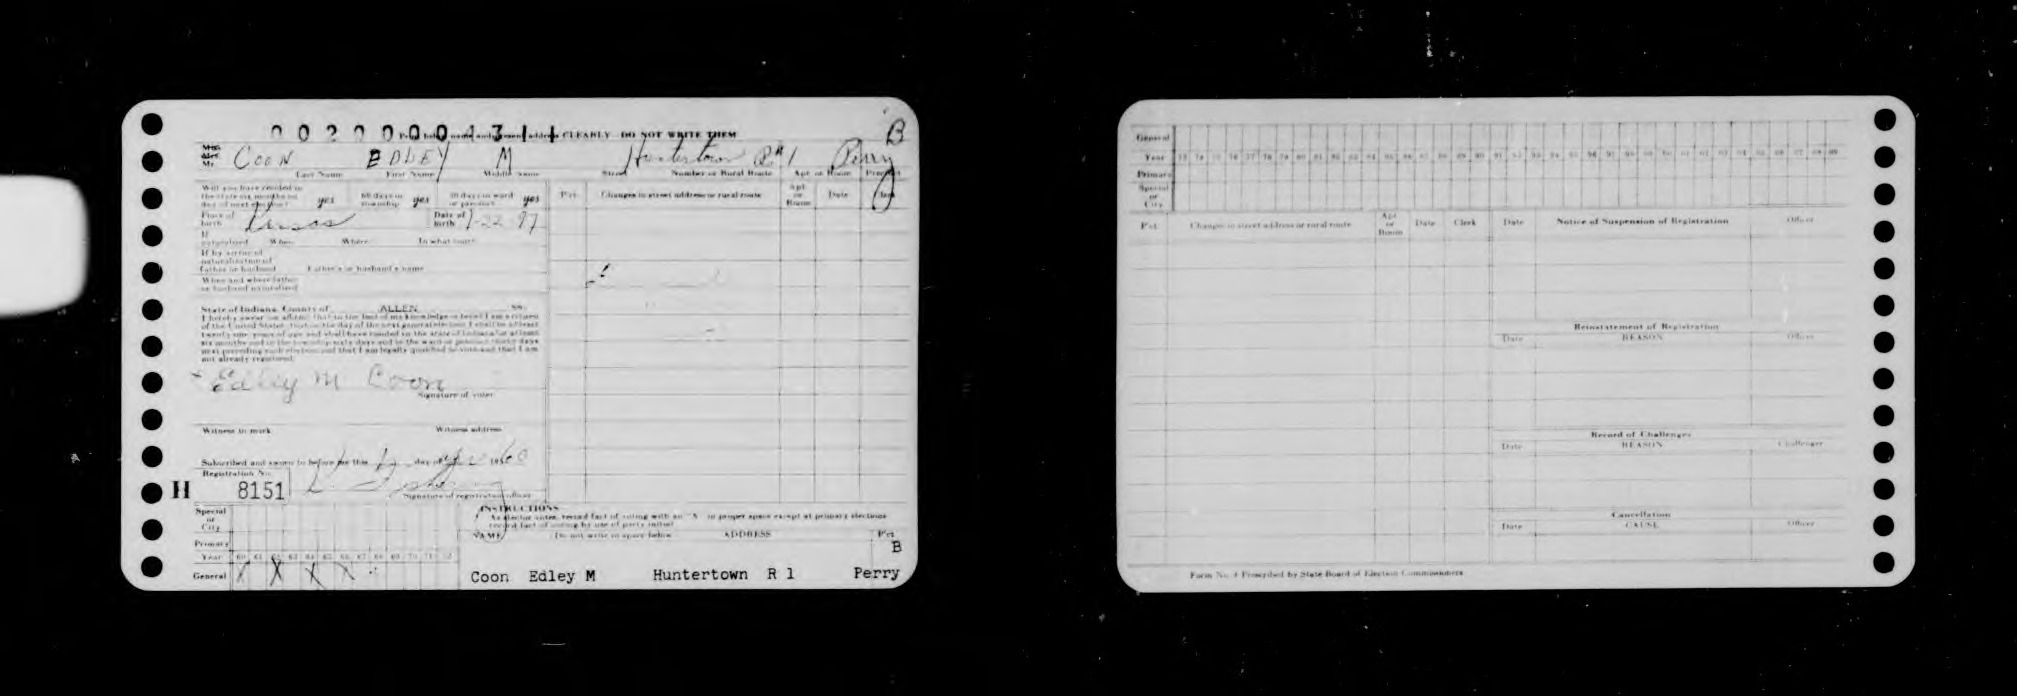 Print below name and present address CLEARLY - DO NOT WRITE THEM
B
Mr. COON EDLEY M Huntertown R#1 Perry
Last Name First Name Middle Name Street Number or Rural Route Apt or Room Precinct
Will you have resided in the state six months on day of next election? yes 60 days in township yes 30 days in ward or precinct yes
Pct. Changes in street address or rural route Apt or Room Date Clerk
Place of birth Date of birth
If naturalized When Where In what court
If by virtue of naturalization of father or husband Father's or husband's name
When and where father or husband naturalized
State of Indiana, County of ALLEN ss:
I hereby swear (or affirm) that to the best of my knowledge or belief I am a citizen
of the United States, that on the day of the next general election I shall be at least
twenty-one years of age and shall have resided in the state of Indiana for at least
six months and in the township sixty days and in the ward or precinct thirty days
next preceding such election and that I am legally qualified to vote and that I am
not already registered.
Edley M Coon
Signature of voter
Witness to mark Witness address
Subscribed and sworn to before me this day of
Registration No.
H 8151
Signature of registration officer
INSTRUCTIONS
As elector votes, record fact of voting with an "X" in proper space except at primary elections
record fact of voting by use of party initial
Special or City
Primary
Year 60 61 62 63 64 65 66 67 68 69 70 71
General X X X X
NAME Do not write in space below ADDRESS Pct.
B
Coon Edley M Huntertown R 1 Perry
General
Year
Primary
Special or City
Pct. Changes in street address or rural route Apt or Room Date Clerk
Date Notice of Suspension of Registration Officer
Reinstatement of Registration
Date REASON Officer
Record of Challenges
Date REASON Challenger
Cancellation
Date CAUSE Officer
Form No. 4 Prescribed by State Board of Election Commissioners